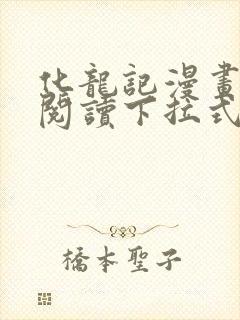 化龍記漫畫
閱讀下拉式
橋本聖子